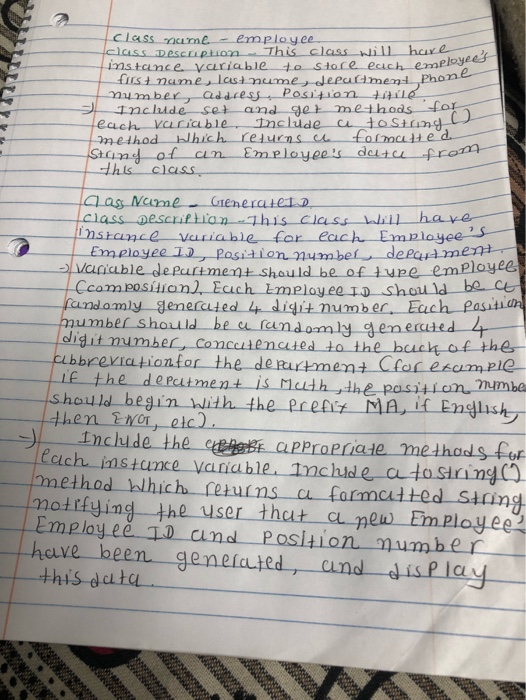 Class name - employee
class Description - This class will have
instance variable to store each employee's
first name, last name, department, Phone
number, address, Position title
→ Include set and get methods for
each variable. Include a toString()
method which returns a formatted
String of an Employee's data from
this class.
Class Name - GenerateID
class Description - This class will have
instance variable for each Employee's
Employee ID, Position number, department
→ variable department should be of type employee
(composition). Each Employee ID should be a
randomly generated 4 digit number. Each Position
number should be a randomly generated 4
digit number, concatenated to the back of the
abbreviation for the department (for example
if the depatment is Math, the position number
should begin with the prefix MA, if English,
then ENG, etc).
→ Include the appropriate methods for
each instance variable. Include a toString()
method which returns a formatted string
notifying the user that a new Employee
Employee ID and Position number
have been generated, and display
this data.